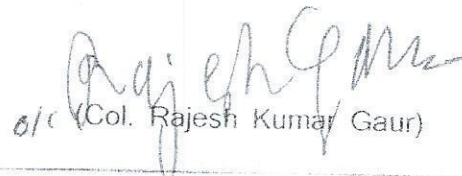 Rajesh Gaur
o/c (Col. Rajesh Kumar Gaur)